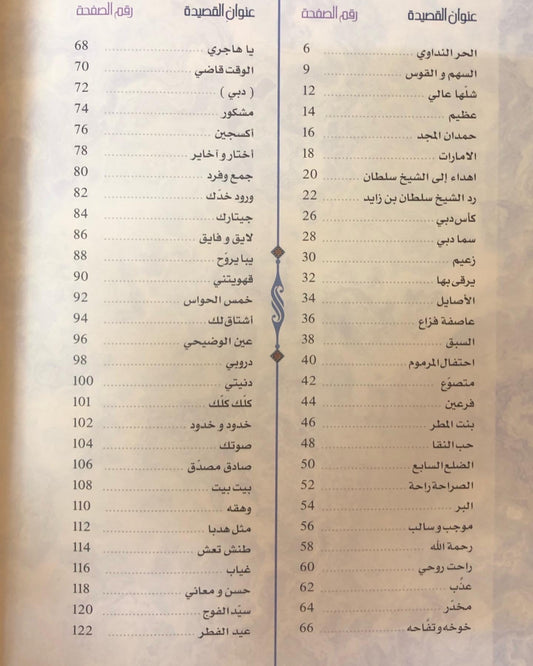 عنوان القصيدة رقم الصفحة
الحر النداوي 6
السهم و القوس 9
شلّها عالي 12
عظيم 14
حمدان المجد 16
الامارات 18
اهداء إلى الشيخ سلطان 20
رد الشيخ سلطان بن زايد 22
كأس دبي 26
سما دبي 28
زعيم 30
يرقى بها 32
الأصايل 34
عاصفة فزاع 36
السبق 38
احتفال المرموم 40
متصوّع 42
فرعين 44
بنت المطر 46
حب النقا 48
الضلع السابع 50
الصراحة راحة 52
البر 54
موجب و سالب 56
رحمة الله 58
راحت روحي 60
عذّب 62
مخدّر 64
خوخه و تفّاحه 66
عنوان القصيدة رقم الصفحة
يا هاجري 68
الوقت قاضي 70
( دبي ) 72
مشكور 74
أكسجين 76
أختار و أخاير 78
جمع وفرد 80
ورود خدّك 82
جيتارك 84
لايق و فايق 86
يبا يروّح 88
قهويتني 90
خمس الحواس 92
أشتاق لك 94
عين الوضيحي 96
دروبي 98
دنيتي 100
كلّك كلّك 101
خدود و خدود 102
صوتك 104
صادق مصدّق 106
بيت بيت 108
وهقه 110
مثل هدبا 112
طنش تعش 114
غياب 116
حسن و معاني 118
سيّد الفوج 120
عيد الفطر 122